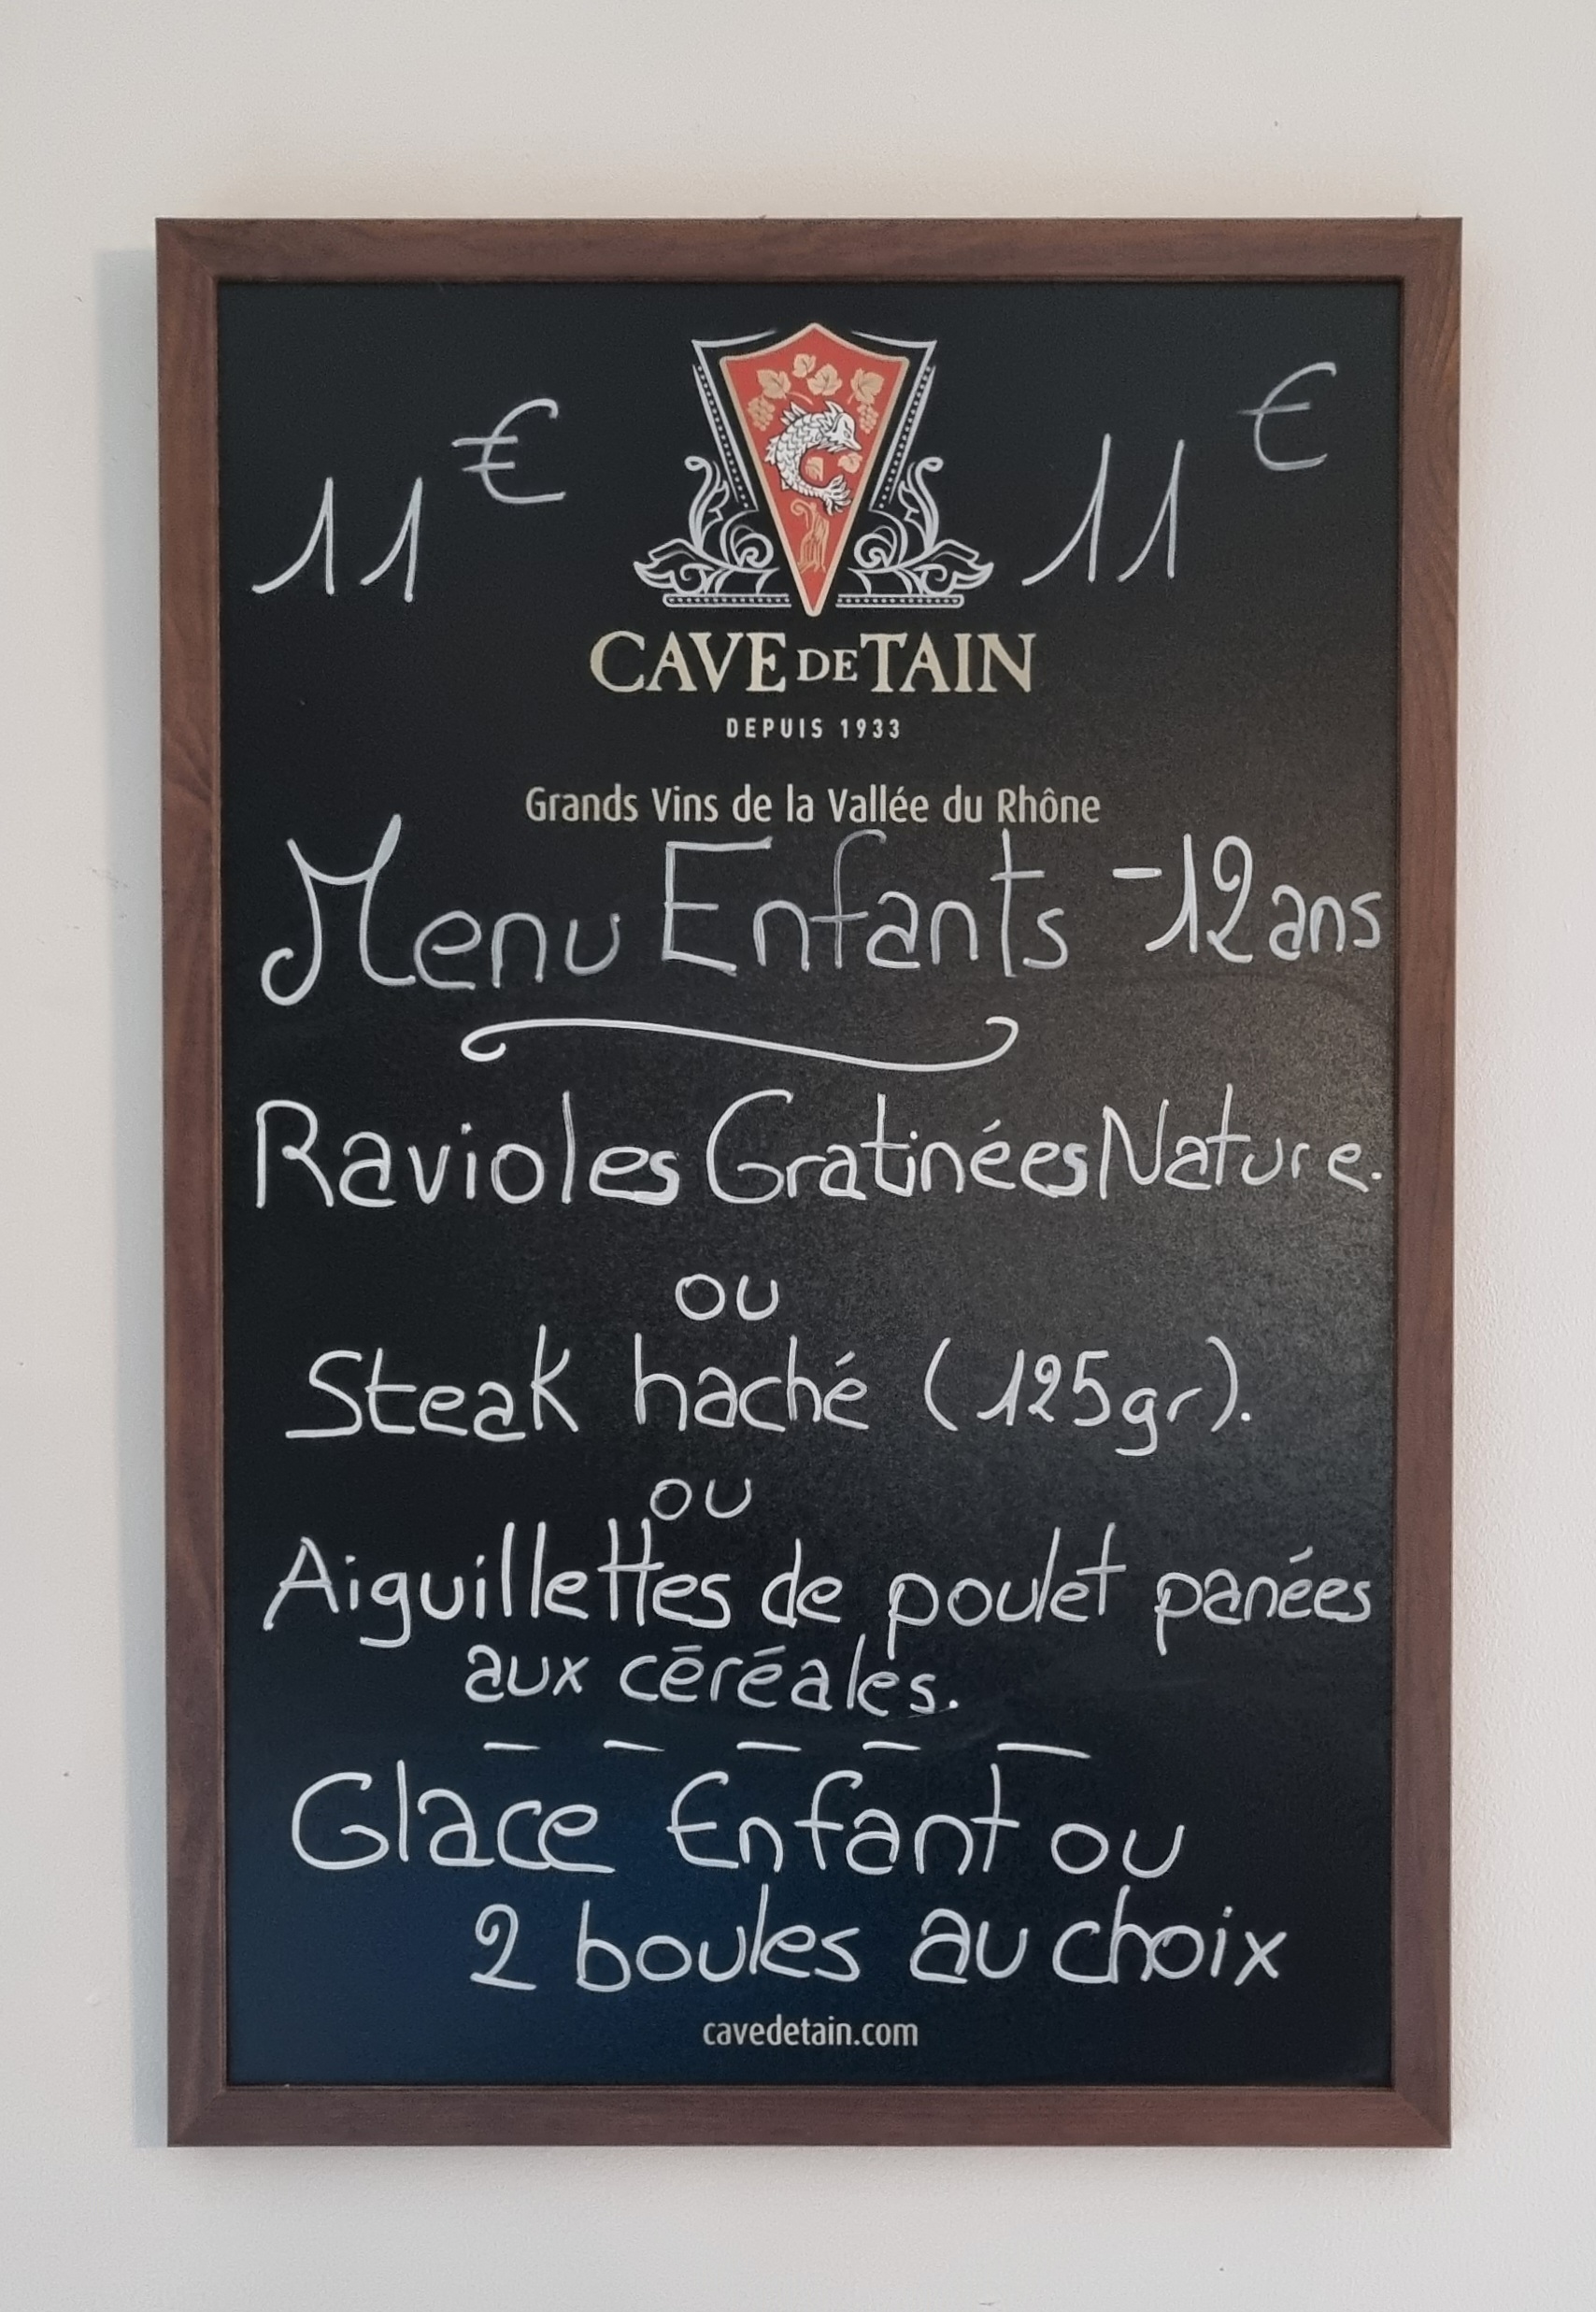 11€ 11€
CAVE DE TAIN
DEPUIS 1933
Grands Vins de la Vallée du Rhône
Menu Enfants -12 ans
Ravioles Gratinées Nature.
ou
Steak haché (125gr).
ou
Aiguillettes de poulet panées
aux céréales.
Glace Enfant ou
2 boules au choix
cavedetain.com